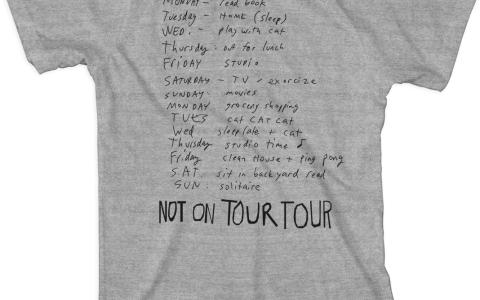 MONDAY - read book
Tuesday - HOME (sleep)
WED. - play with cat
Thursday: out for lunch
FRIDAY STUDIO
SATURDAY - TV / exorcize
SUNDAY. movies
MONDAY grocery shopping
TUES cat CAT cat
Wed sleep late + cat
Thursday studio time ♪
Friday clean House + ping pong
SAT. sit in backyard read
SUN. solitaire
NOT ON TOUR TOUR